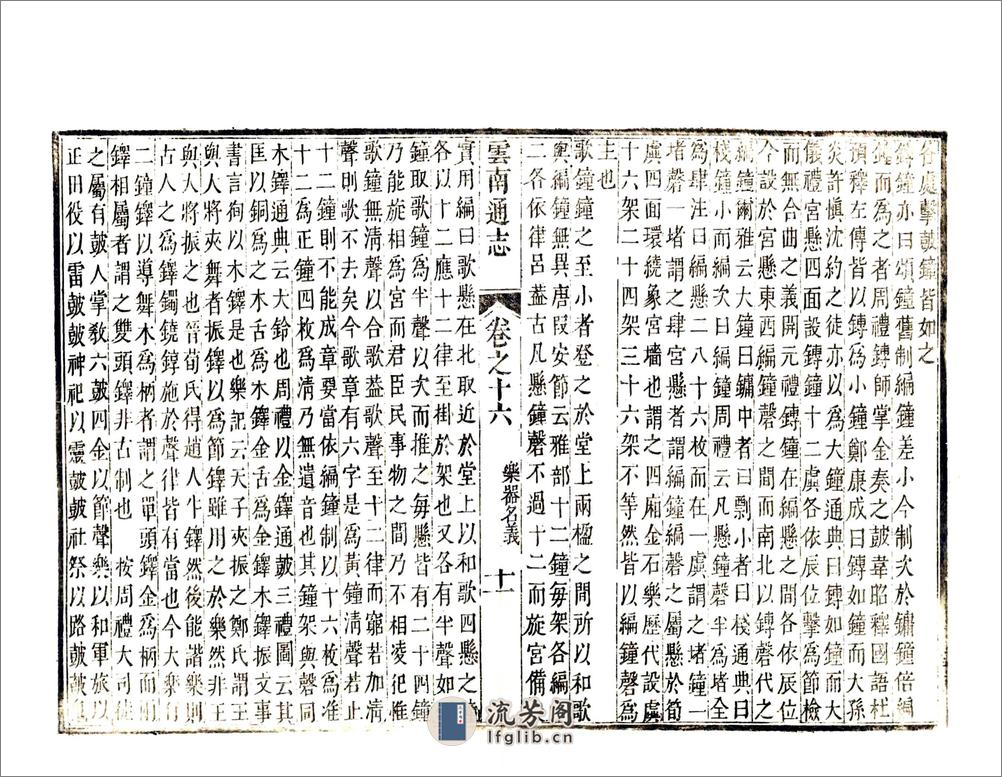 各處擊鼓鏞皆如之
鎛鐘亦曰頌鐘舊制編鐘差小今制次於鏞鐘倍編
鐘而爲之者周禮鎛師掌金奏之鼓韋昭釋國語杜
預釋左傳皆以鎛爲小鐘鄭康成曰鎛如鐘而大孫
炎許愼沈約之徒亦以爲大鐘通典曰鎛如鐘而大
儀禮宮懸四面設鎛鐘十二虡各依辰位擊爲節檢
而無合曲之義開元禮鎛鐘在編懸之間各依辰位
今設於宮懸東西編鐘磬之間而南北以鎛代之
編鐘爾雅云大鐘曰鏞中者曰剽小者曰棧通典曰
棧鐘小而編之編鐘周禮云凡懸鐘磬半爲堵全
爲肆注曰編懸二八十六枚而在一虡謂之堵鐘一
堵磬一堵謂之肆宮懸者謂編鐘編磬之屬懸於筍
虡四面環繞象宮墻也謂之四廂金石樂歷代設虡
十六架二十四架三十六架不等然皆以編鐘磬爲
主也
歌鐘鐘之至小者登之於堂上兩楹之間所以和歌
與編鐘無異唐叚安節云雅部十二鐘每架各編
二各依律呂葢古凡懸鐘磬不過十二而旋宮備
雲南通志
卷之十六
樂器名義
十一
實用編曰歌懸在北取近於堂上以和歌四懸之
各以十二應十二律至掛於架也又各有半聲如
鐘取歌鐘爲半聲以次而推之每懸皆有二十四
乃能旋相爲宮而君臣民事物之間乃不相凌犯惟
歌鐘無淸聲以合歌葢歌聲至十二律而窮若加淸
聲則歌不去矣今歌章有六字是爲黃鐘淸聲若止
十二鐘則不能成章要當依編鐘制以十六枚爲
十二爲正鐘四枚爲淸乃無遺音也其鐘架與磬同
木鐸通典云大鈴也周禮以金鐸通鼓三禮圖云其
匡以銅爲之木舌爲木鐸金舌爲金鐸木鐸振文事
書言徇以木鐸是也樂記云天子夾振之鄭氏謂王
與大將夾舞者振鐸以爲節鐸雖用之於樂然非王
與人將振之也晉荀氏得趙人牛鐸然後能諧樂則
古人之爲鐸鐲鐃錞施於聲律皆有當也今大樂有
二鐘鐸以導舞木爲柄者謂之單頭鐸金爲柄而
鐸相屬者謂之雙頭鐸非古制也　按周禮大司徒
之屬有鼓人掌敎六鼓四金以節聲樂以和軍旅以
正田役以雷鼓鼓神祀以靈鼓鼓社祭以路鼓鼓鬼
流芳閣
lfglib.cn